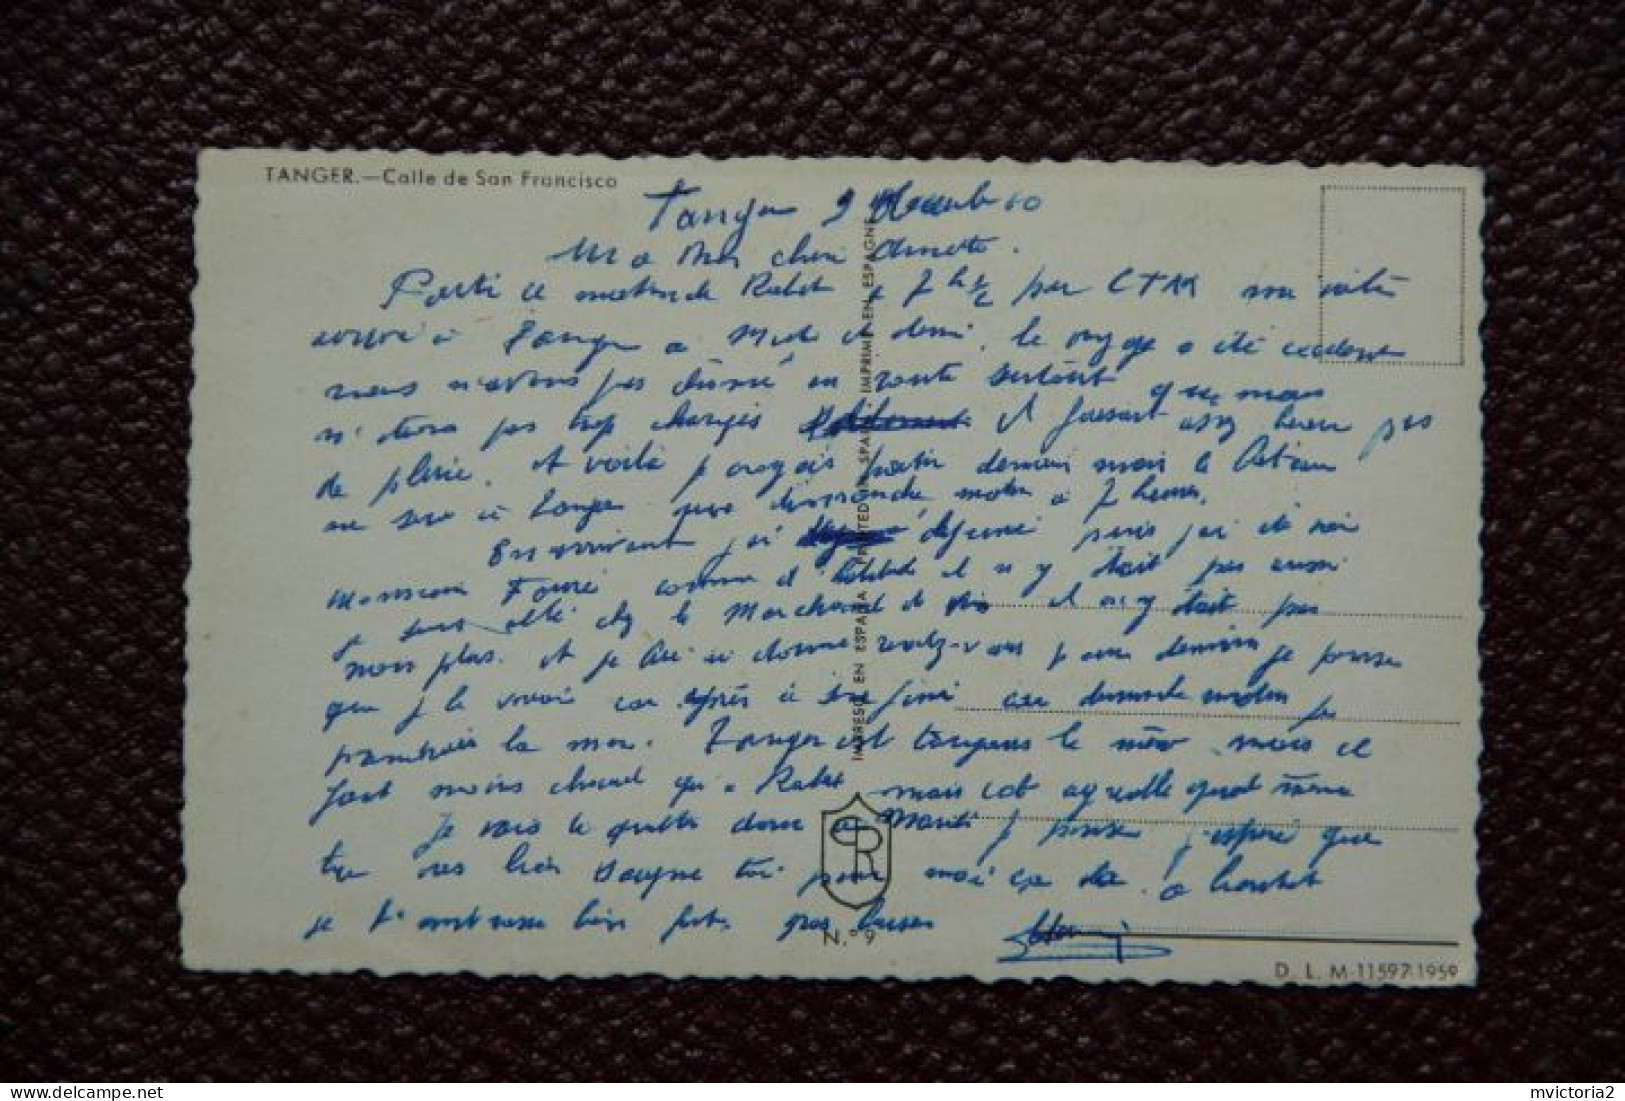 TANGER.—Calle de San Francisco
Tanger 9 Décembre 60
Ma cher
Parti ce matin de Rabat à 7 h ½ par CTM me voilà
arrivé à Tanger a Midi et demi, le voyage a été excellent
nous n'avons pas en route surtout que nous
n'étions pas trop chargés il faisait assez beau pas
de pluie. et voilà je croyais partir demain mais le Bateau
ne sera à Tanger que dimanche matin à 7 heures.
En arrivant j'ai déjeuné puis j'ai été voir
Monsieur Fauré comme d'habitude il n'y était pas aussi
je suis allé chez le Marchand de vin il n'y était pas
non plus. et je lui ai donné rendez-vous pour demain je pense
que je le verrai car après à sera fini car dimanche matin je
prendrais la mer. Tanger est toujours le même mais il
fait moins chaud qu'a Rabat mais c'est agréable quand même
Je vais te quitter donc ma j'espère que
tu vas bien soigne toi pour moi ça va. a bientôt
je t'embrasse bien fort. gros baisers
IMPRESO EN ESPAÑA / PRINTED IN SPAIN / IMPRIMÉ EN ESPAGNE
R
N.º 9
D. L. M-11597-1959
mvictoria2